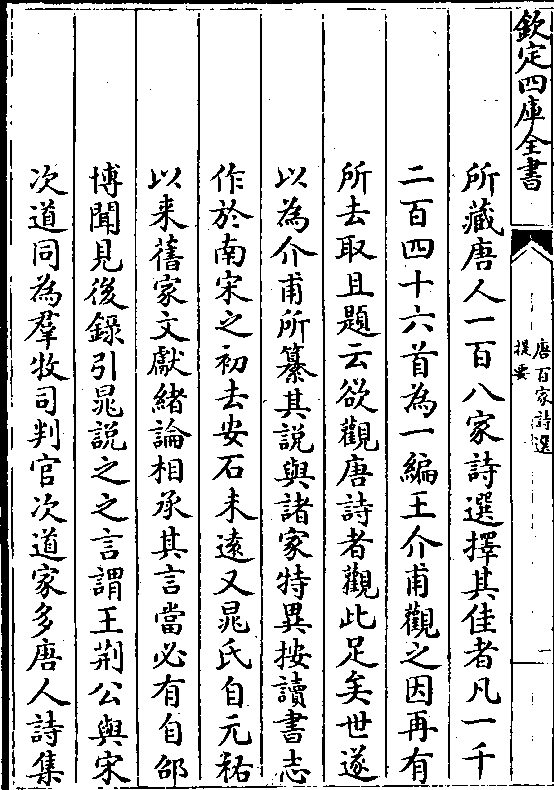 欽定四庫全書
唐百家詩選
提要
一
所藏唐人一百八家詩選擇其佳者凡一千
二百四十六首為一編王介甫觀之因再有
所去取且題云欲觀唐詩者觀此足矣世遂
以為介甫所纂其說與諸家特異按讀書志
作於南宋之初去安石未遠又晁氏自元祐
以來舊家文獻緒論相承其言當必有自邵
博聞見後錄引晁說之之言謂王荆公與宋
次道同為羣牧司判官次道家多唐人詩集